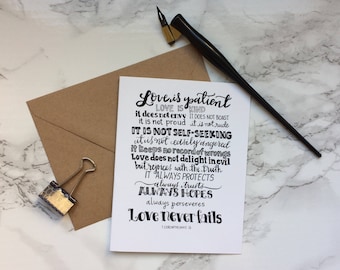 Love is patient
LOVE IS KIND
it does not envy IT DOES NOT BOAST
it is not proud it is not rude
IT IS NOT SELF-SEEKING
it is not easily angered
IT keeps no record of wrongs
Love does not delight in evil
but rejoices with the Truth
IT ALWAYS PROTECTS
always trusts
ALWAYS HOPES
always perseveres
Love Never fails